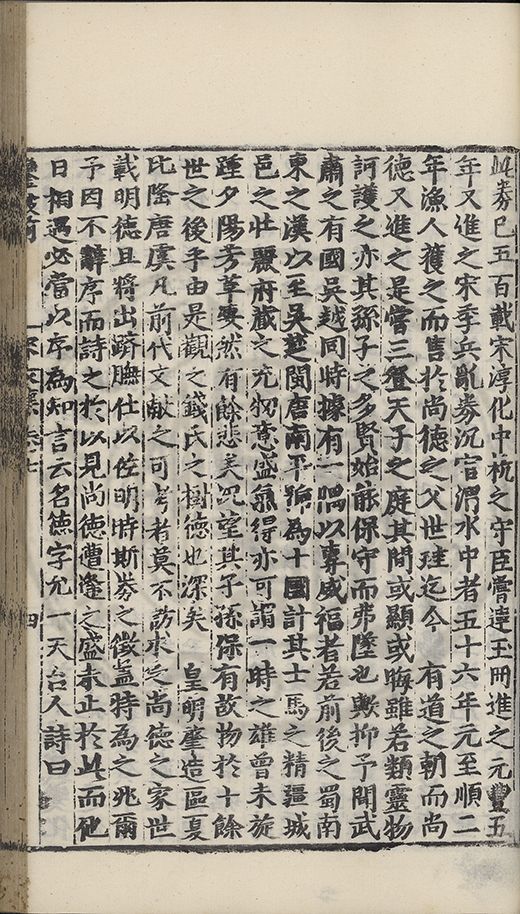 此券巳五百載宋淳化中杭之守臣嘗遣玉冊進之元豐五
年又進之宋季兵亂券沉官渭水中者五十六年元至順二
年漁人獲之而售於尚德之父世珪迄今 有道之朝而尚
德又進之是嘗三登天子之庭其間或顯或晦雖若類靈物
訶護之亦其孫子之多賢始能保守而弗墜也歟抑予聞武
肅之有國吳越同時據有一隅以專威福者若前後之蜀南
東之漢以至吳楚閩唐南平號為十國計其士馬之精疆城
邑之壯麗府藏之充牣意盛氣得亦可謂一時之雄曾未旋
踵夕陽芳草 然有餘悲矣況望其子孫保有故物於十餘
世之後乎由是觀之錢氏之樹德也深矣 皇明肇造區夏
比隆唐虞凡前代文獻之可考者莫不訪求之尚德之家世
載明德且將出躋膴仕以佐明時斯券之徵盖特為之兆爾
予因不辭序而詩之於以見尚德遭逢之盛未止於此而他
日相遇必當以序為知言云名德字允一天台人詩曰
四